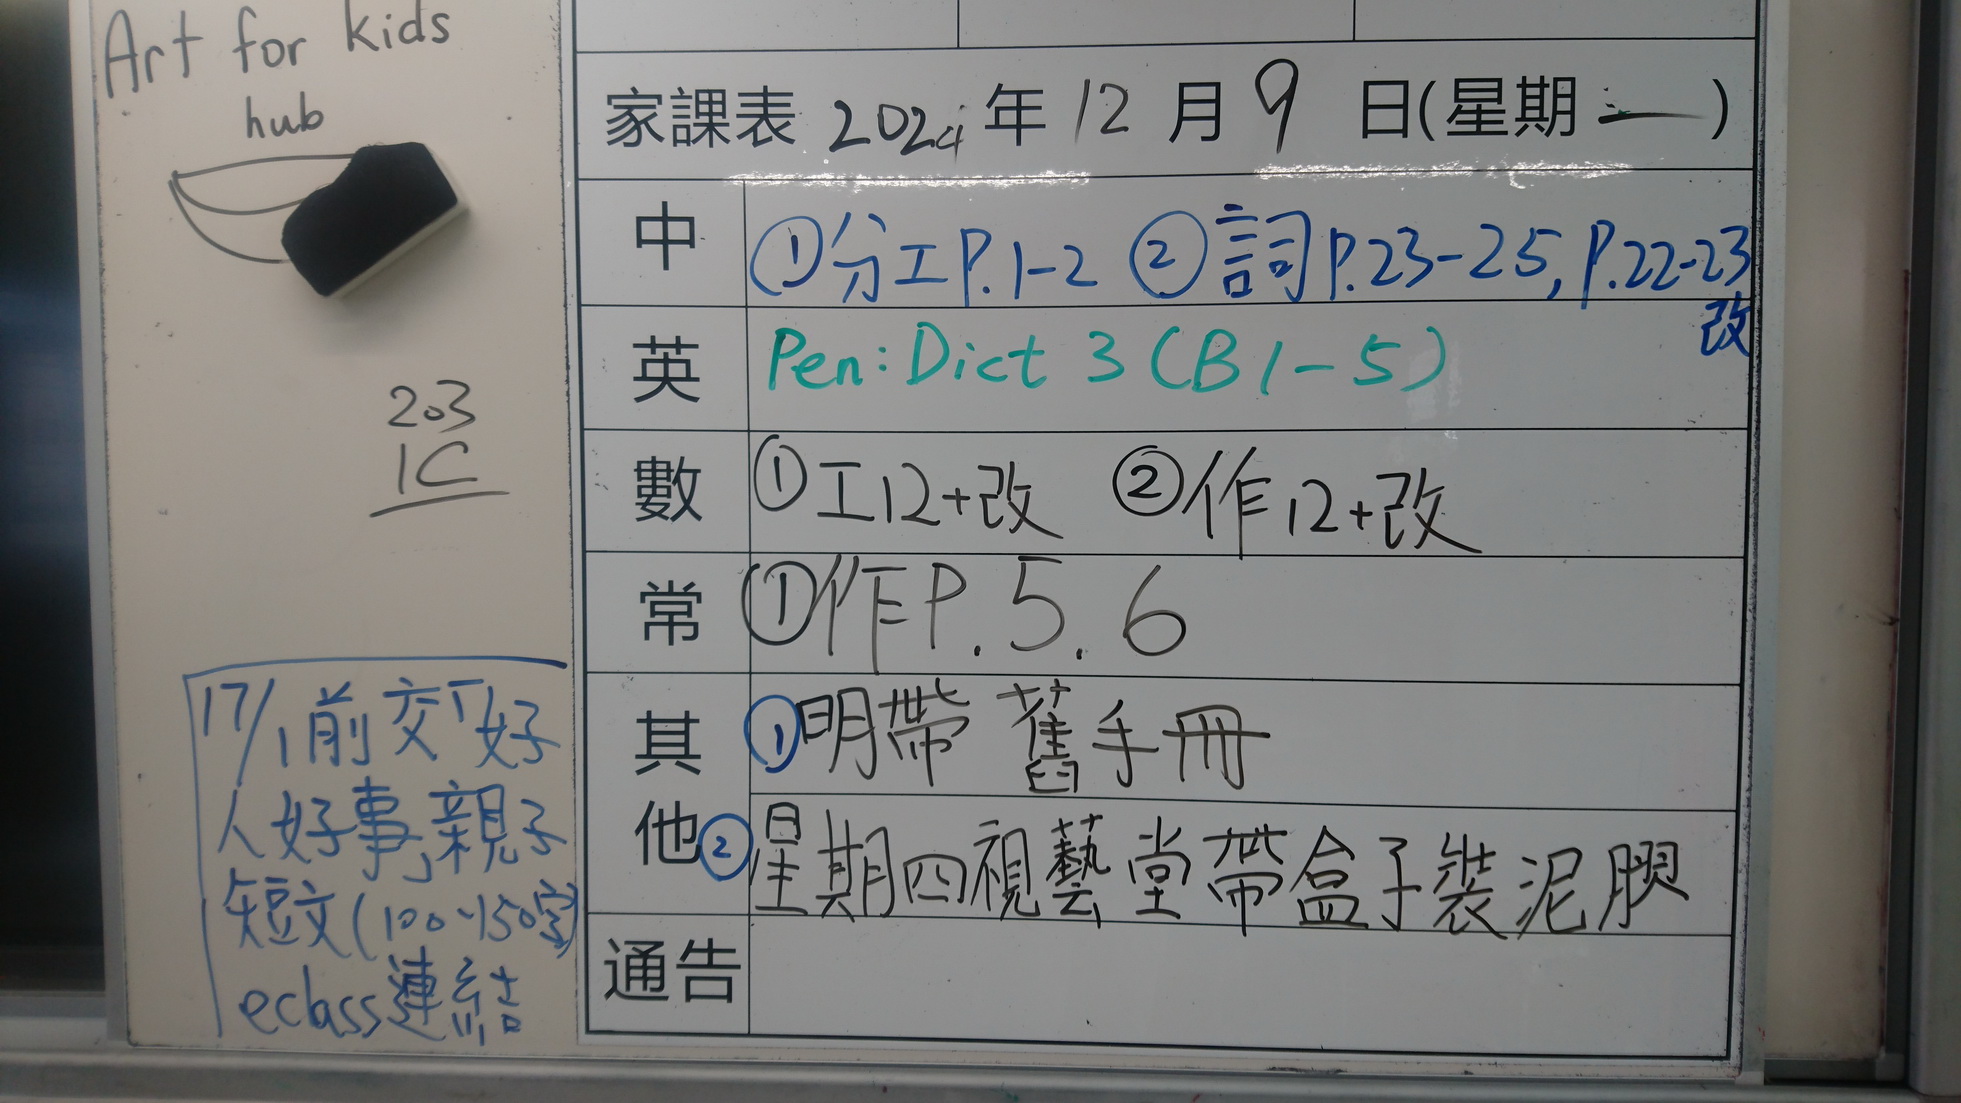 Art for kids
hub
203
1C
17/1前交「好
人好事」親子
短文(100-150字)
eclass連結
家課表 2024年12月9日(星期一)
中 ①分工P.1-2 ②詞P.23-25, P.22-23
改
英 Pen: Dict 3 (B1-5)
數 ①工12+改 ②作12+改
常 ①作P.5.6
其他 ①明帶舊手冊
②星期四視藝堂帶盒子裝泥膠
通告